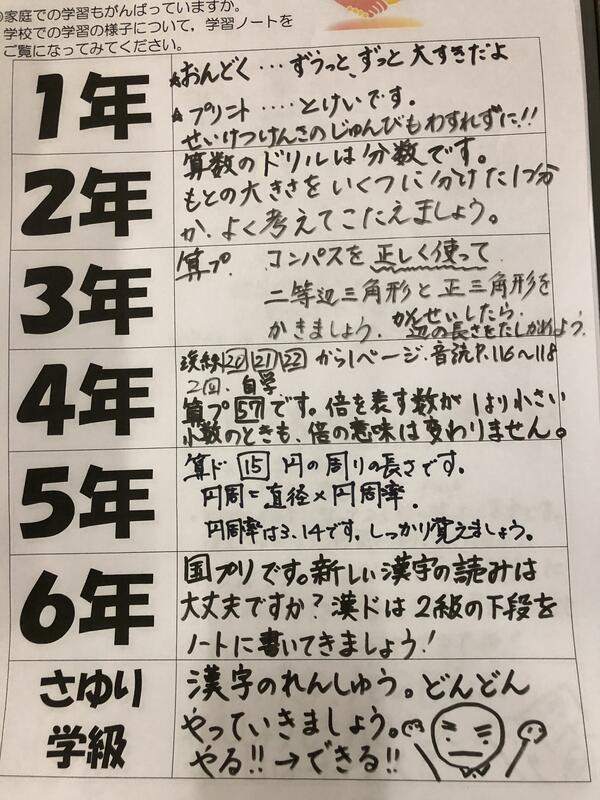 家庭での学習もがんばっていますか。
学校での学習の様子について，学習ノートを
ご覧になってみてください。
1年
☆おんどく…ずうっと、ずっと大すきだよ
☆プリント‥‥とけいです。
せいけつけんさのじゅんびもわすれずに!!
2年
算数のドリルは分数です。
もとの大きさをいくつに分けた1つ分
か、よく考えてこたえましょう。
3年
算プ. コンパスを正しく使って
二等辺三角形と正三角形を
かきましょう. かんせいしたら、
辺の長さをたしかめよう.
4年
漢練20 21 22から1ページ.音読P.116〜118
2回.自学
算プ57です。倍を表す数が1より小さい
小数のときも、倍の意味は変わりません。
5年
算ド15円の周りの長さです。
円周=直径×円周率.
円周率は3.14です.しっかり覚えましょう。
6年
国プリです。新しい漢字の読みは
大丈夫ですか?漢ドは2級の下段を
ノートに書いてきましょう!
さゆり
学級
漢字のれんしゅう。どんどん
やっていきましょう。
やる!!→できる!!